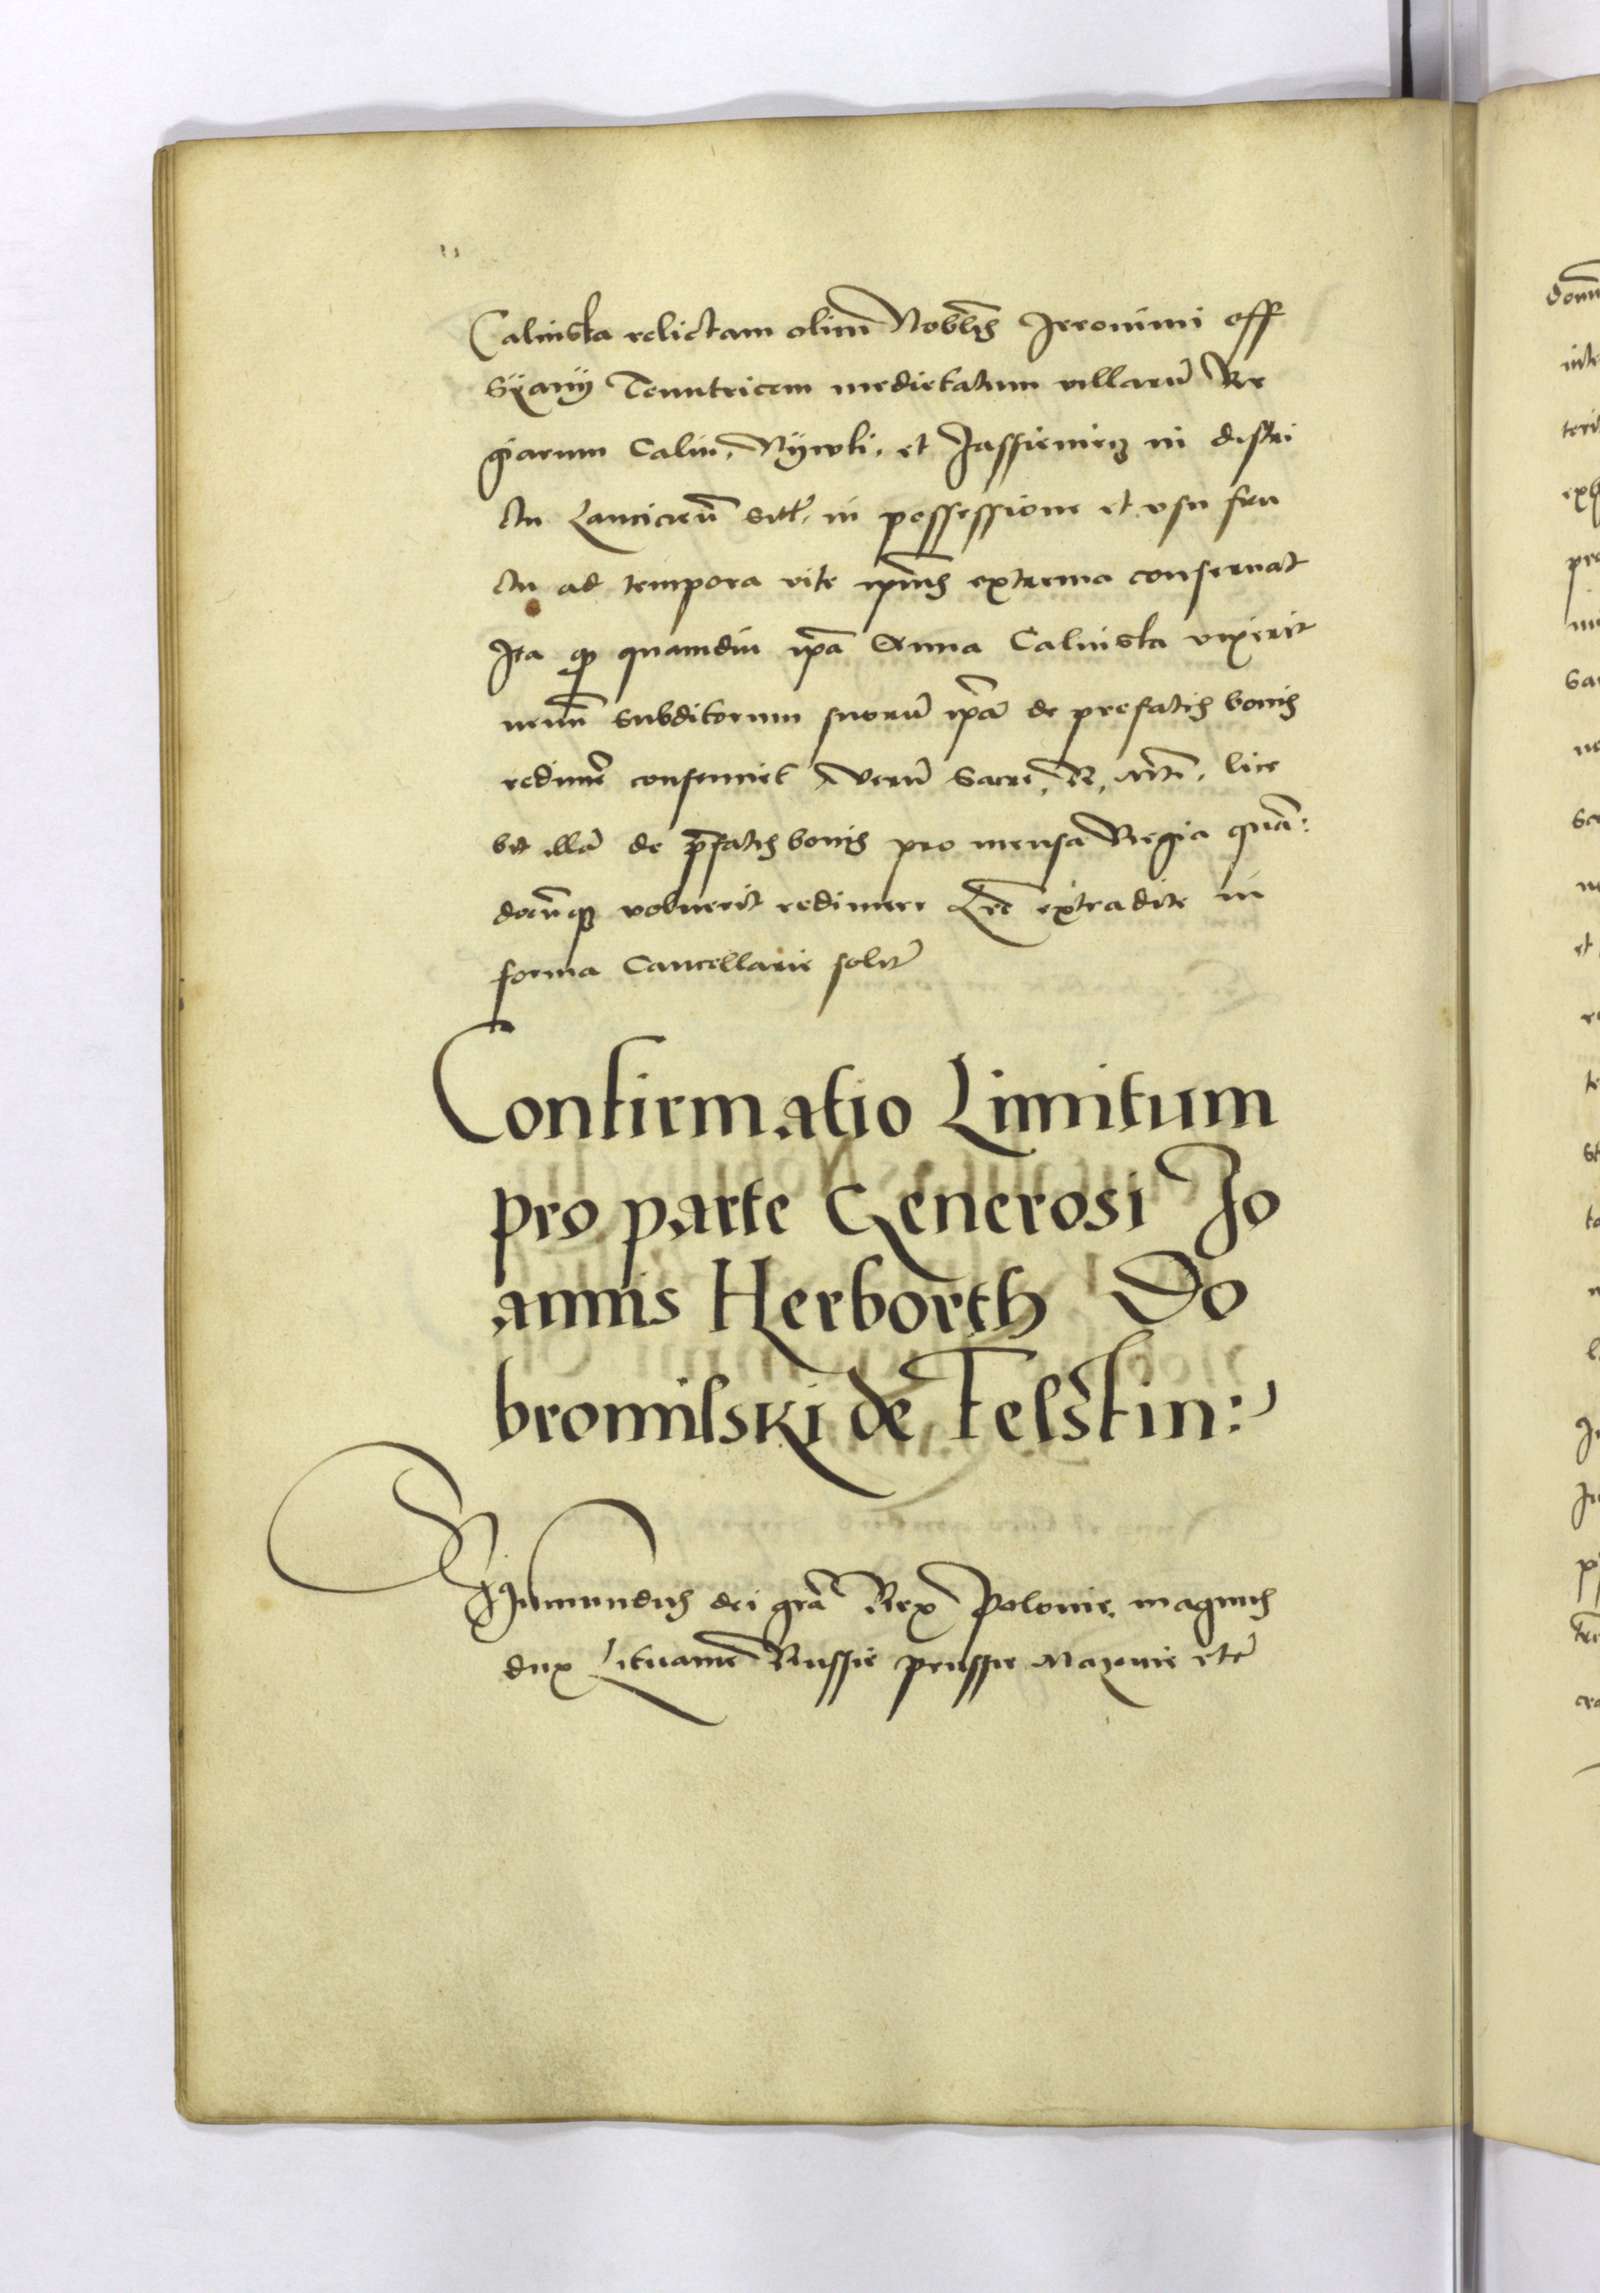 Calinska relictam olim̄ Nobl̄is Ieronimi off
Sÿany Tenutricem medietatum villarū Re
giarum Calin, Nÿwki, et Jassieniecz in distri
ctu Lanciciēn sitt̄, in possessione et vsu fru
ctu ad tempora vite ip̄ius extrema conseruat
Ita qꝫ quamdiu ip̄a Anna Calinska vixerit
nemī subditorum suorū ip̄ā de prefatis bonis
redimēr consenciet Verū Sacrē, R, Mtī, lice
bit illā de p̄fatis bonis pro mensa Regia quā:
docūqꝫ voluerit redimere Lrē extradite in
forma Cancellarie solit̄
Confirmatio Limitum
pro parte Generosi Jo
annis Herborth Do
bromilski de Felstin:
Sigismundus dei grā Rex Polonie, magnus
dux Lituanie Russie prussie Mazouie etc̄